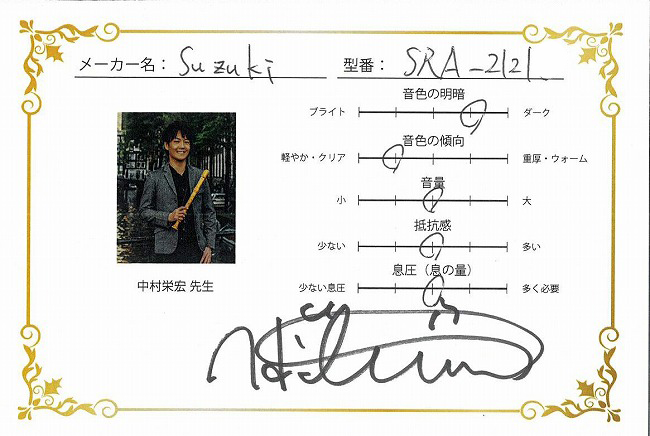 メーカー名： Suzuki 型番： SRA-2121
音色の明暗
ブライト ダーク
音色の傾向
軽やか・クリア 重厚・ウォーム
音量
小 大
抵抗感
少ない 多い
息圧（息の量）
少ない息圧 多く必要
中村栄宏 先生